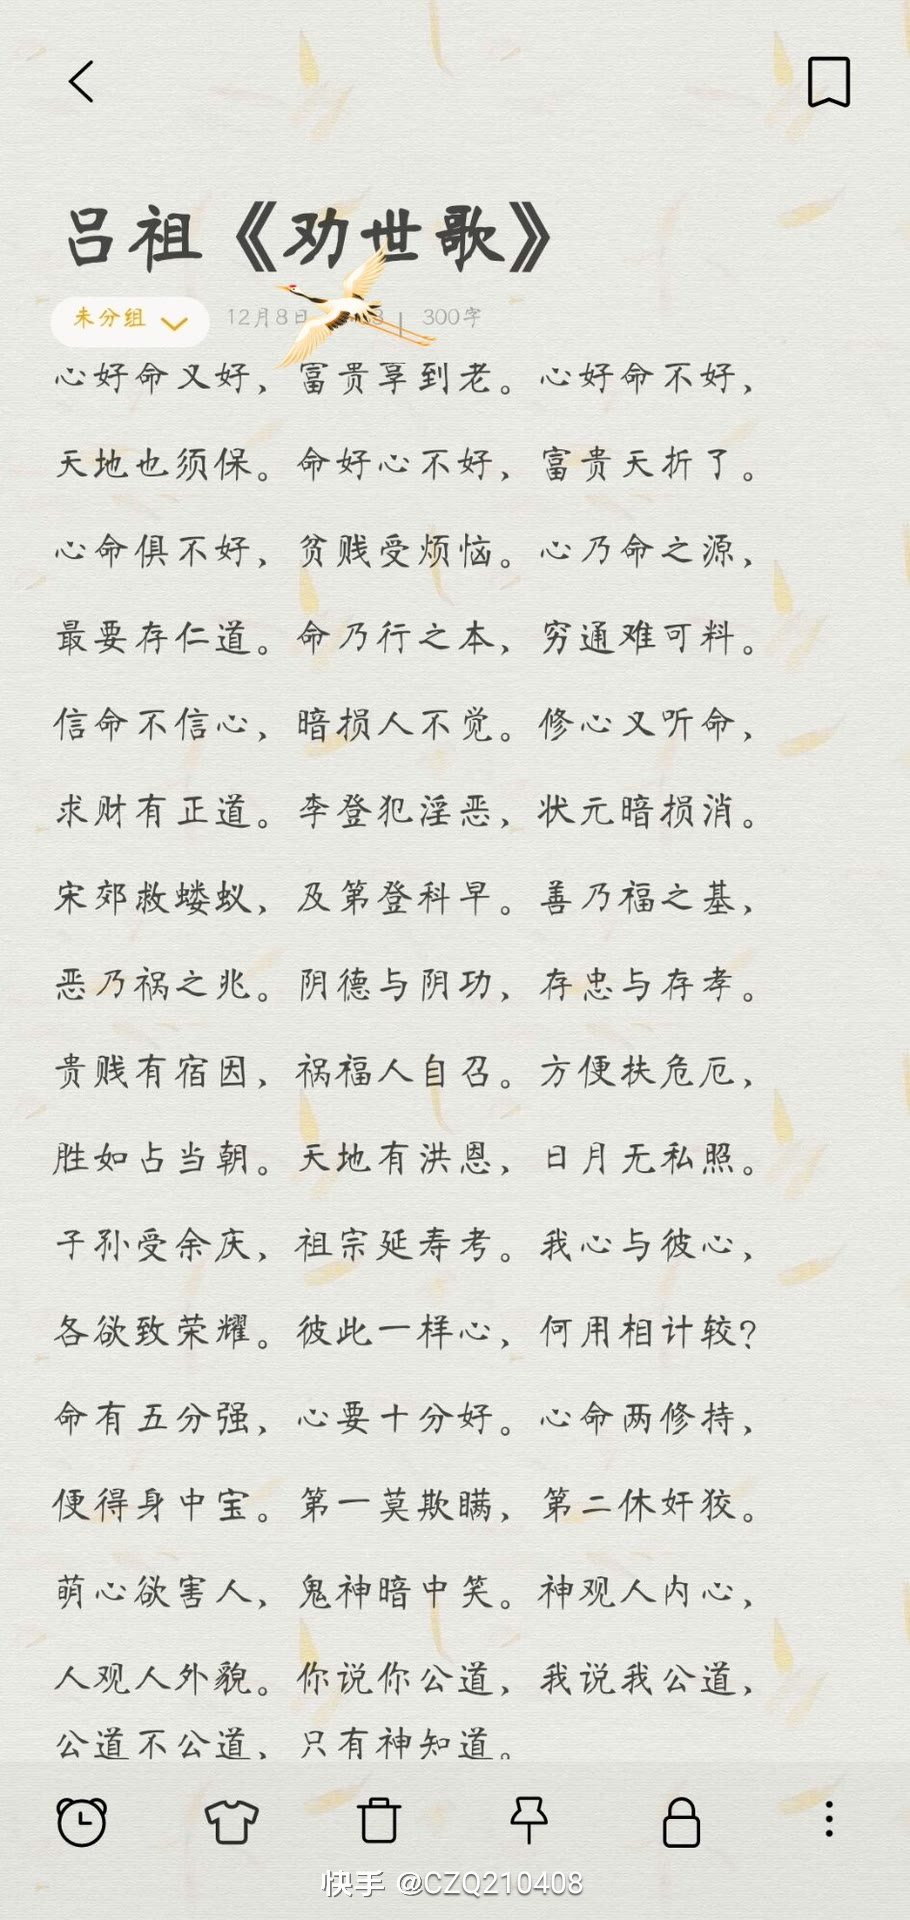 吕祖《劝世歌》
未分组
12月8日 | 300字
心好命又好，富贵享到老。心好命不好，
天地也须保。命好心不好，富贵天折了。
心命俱不好，贫贱受烦恼。心乃命之源，
最要存仁道。命乃行之本，穷通难可料。
信命不信心，暗损人不觉。修心又听命，
求财有正道。李登犯淫恶，状元暗损消。
宋郊救蝼蚁，及第登科早。善乃福之基，
恶乃祸之兆。阴德与阴功，存忠与存孝。
贵贱有宿因，祸福人自召。方便扶危厄，
胜如占当朝。天地有洪恩，日月无私照。
子孙受余庆，祖宗延寿考。我心与彼心，
各欲致荣耀。彼此一样心，何用相计较?
命有五分强，心要十分好。心命两修持，
便得身中宝。第一莫欺瞒，第二休奸狡。
萌心欲害人，鬼神暗中笑。神观人内心，
人观人外貌。你说你公道，我说我公道，
公道不公道，只有神知道。
快手 @CZQ210408